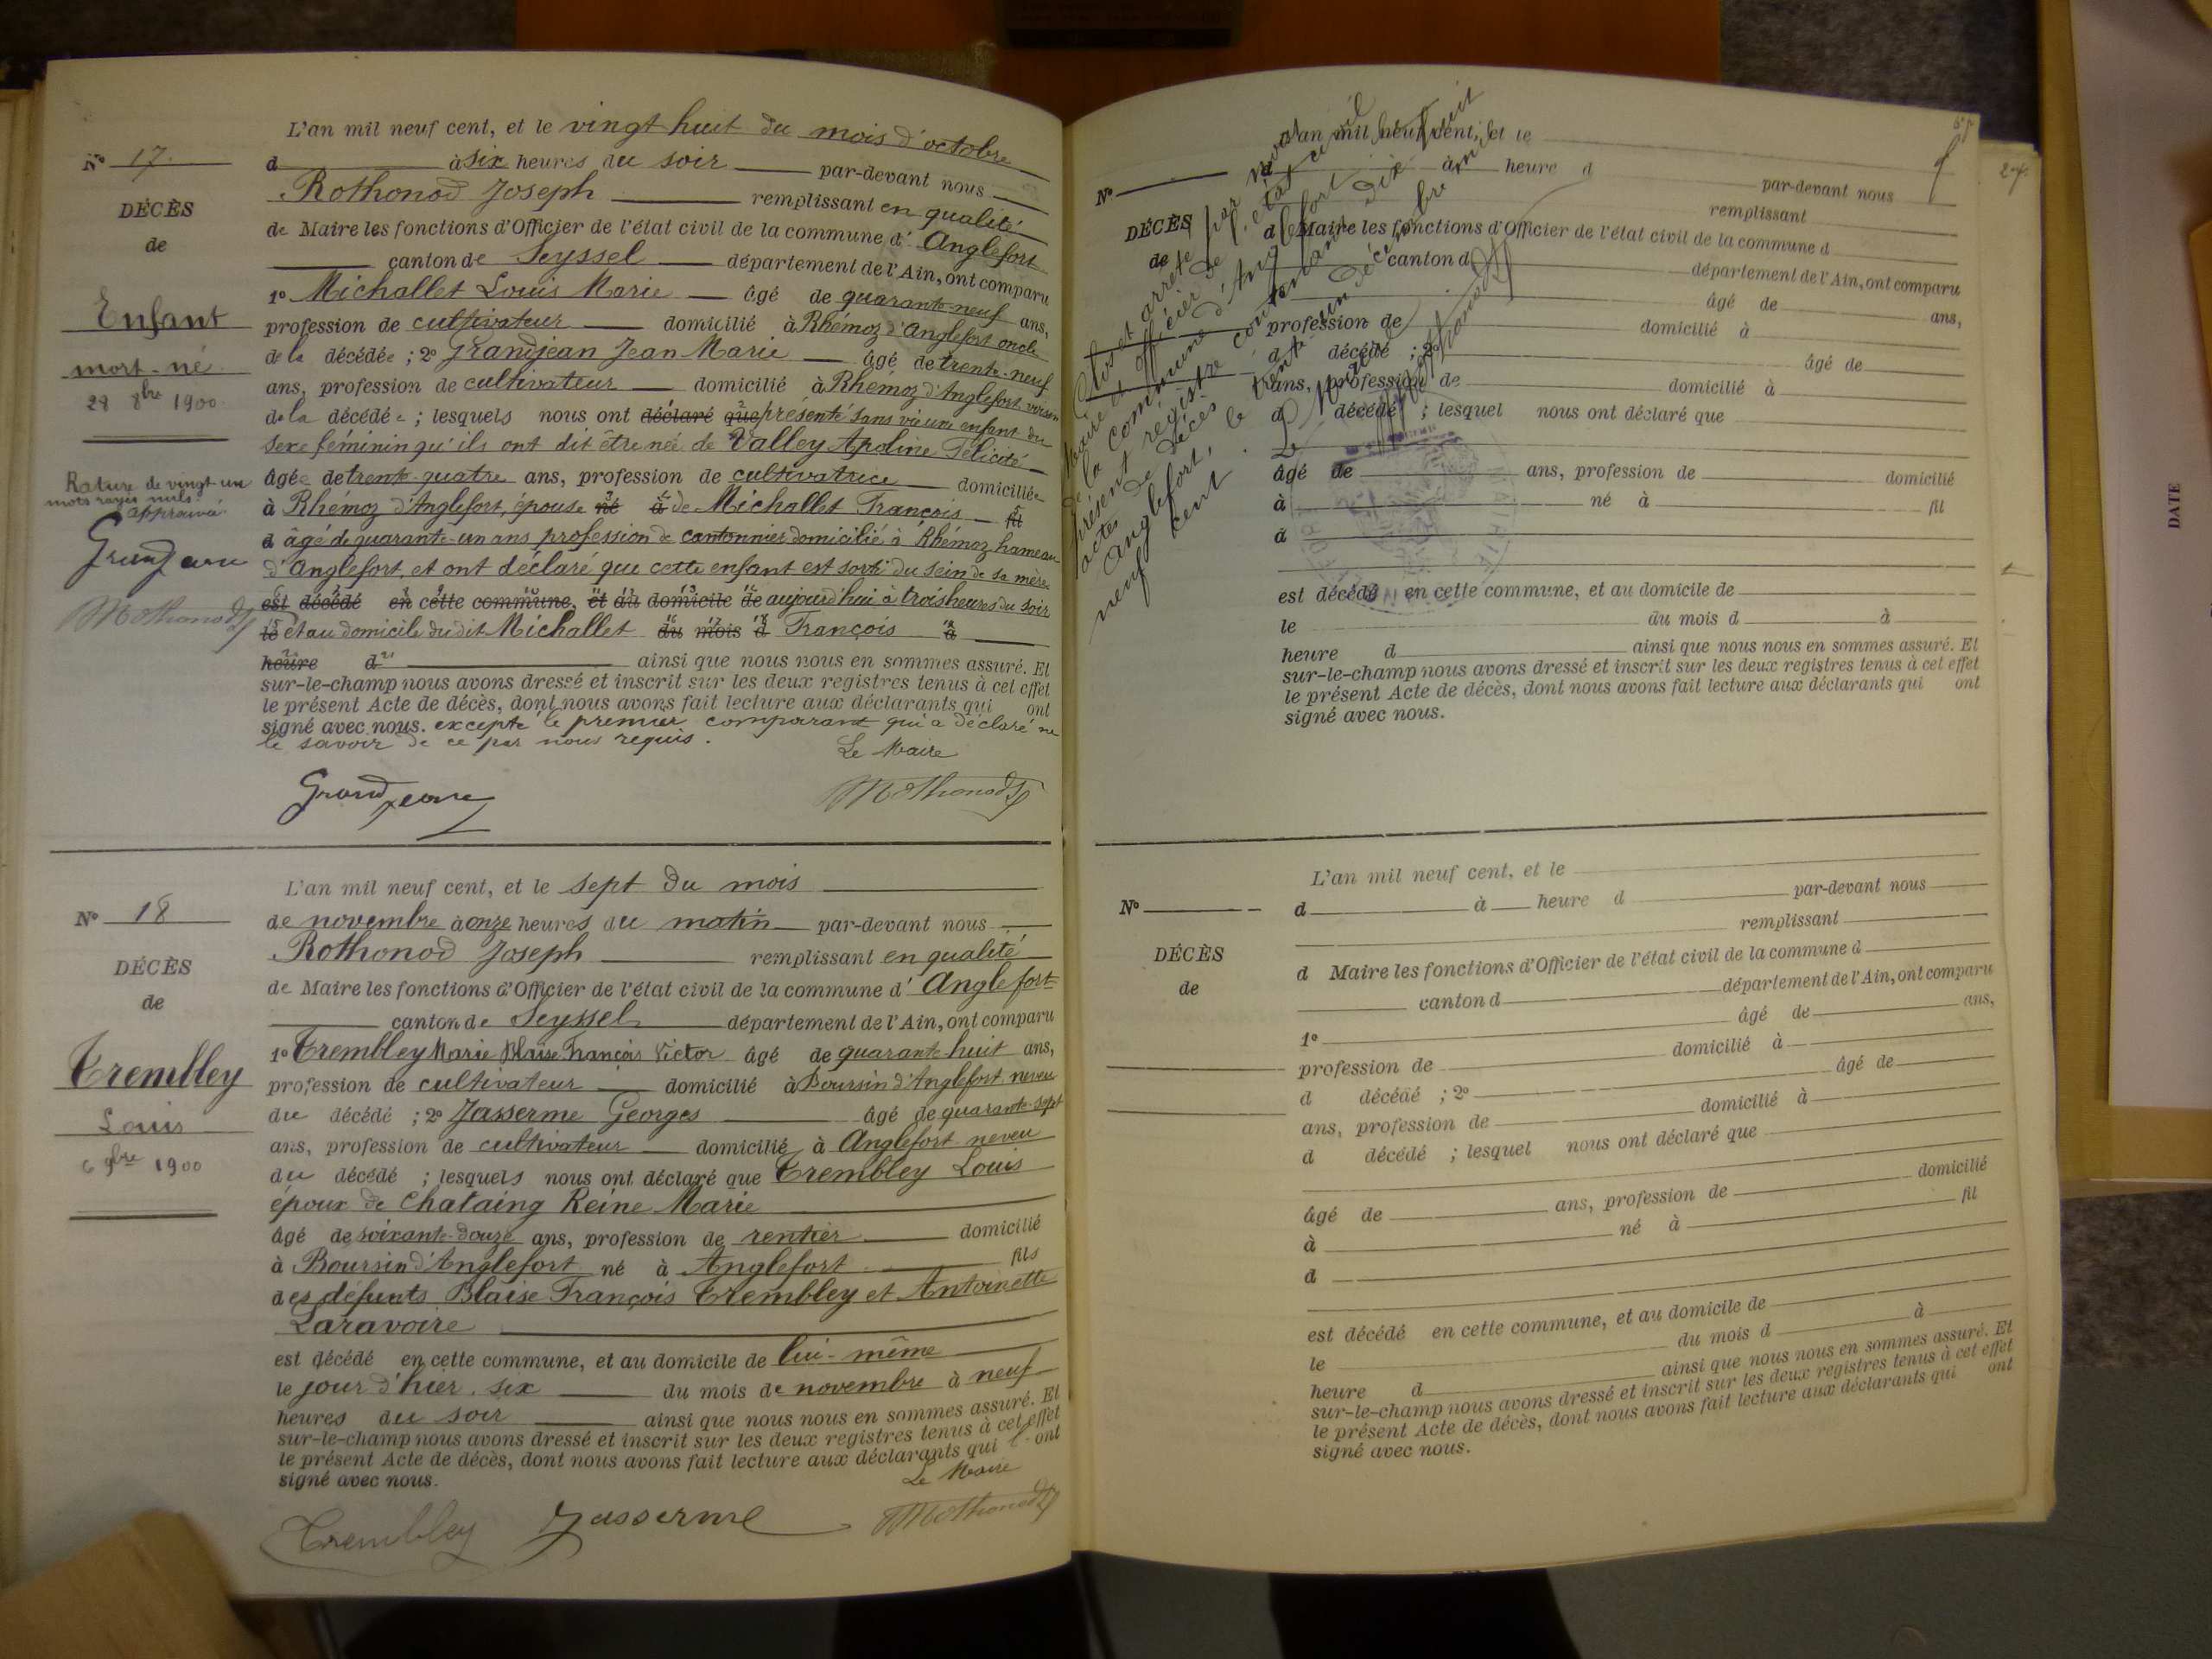 N° 17
DÉCÈS
de
Enfant
mort-né
28 8bre 1900
Rature de vingt-un
mots rayés nuls
approuvé
Grandjean
L'an mil neuf cent, et le vingt huit du mois d'octobre
d à six heures du soir par-devant nous
Rothonod Joseph remplissant en qualité
de Maire les fonctions d'Officier de l'état civil de la commune d' Anglefort
canton de Seyssel département de l'Ain, ont comparu
1° Michallet Louis Marie âgé de quarante-neuf ans,
profession de cultivateur domicilié à Rhémoz d'Anglefort oncle
de la décédée ; 2° Grandjean Jean Marie âgé de trente-neuf
ans, profession de cultivateur domicilié à Rhémoz d'Anglefort voisin
de la décédée ; lesquels nous ont déclaré que présenté sans vie une enfant du
sexe féminin qu'ils ont dit être née de Valley Apoline Félicité
âgée de trente-quatre ans, profession de cultivatrice domiciliée
à Rhémoz d'Anglefort, épouse né à de Michallet François fil
d âgé de quarante-un ans profession de cantonnier domicilié à Rhémoz hameau
d'Anglefort, et ont déclaré que cette enfant est sorti du sein de sa mère
est décédé en cette commune, et au domicile de aujourd'hui à trois heures du soir
le et au domicile du dit Michallet du mois d François à
heure d ainsi que nous nous en sommes assuré. Et
sur-le-champ nous avons dressé et inscrit sur les deux registres tenus à cet effet
le présent Acte de décès, dont nous avons fait lecture aux déclarants qui ont
signé avec nous. excepté le premier comparant qui a déclaré ne
le savoir de ce par nous requis.
Le Maire
Grandjean
N° 18
DÉCÈS
de
Trembley
Louis
6 9bre 1900
L'an mil neuf cent, et le sept du mois
de novembre à onze heures du matin par-devant nous
Rothonod Joseph remplissant en qualité
de Maire les fonctions d'Officier de l'état civil de la commune d' Anglefort
canton de Seyssel département de l'Ain, ont comparu
1° Trembley Marie Blaise François Victor âgé de quarante huit ans,
profession de cultivateur domicilié à Boursin d'Anglefort neveu
du décédé ; 2° Jasserme Georges âgé de quarante-sept
ans, profession de cultivateur domicilié à Anglefort neveu
du décédé ; lesquels nous ont déclaré que Trembley Louis
époux de Chataing Reine Marie
âgé de soixante-douze ans, profession de rentier domicilié
à Boursin d'Anglefort né à Anglefort fils
des défunts Blaise François Trembley et Antoinette
Laravoire
est décédé en cette commune, et au domicile de lui-même
le jour d'hier, six du mois de novembre à neuf
heures du soir ainsi que nous nous en sommes assuré. Et
sur-le-champ nous avons dressé et inscrit sur les deux registres tenus à cet effet
le présent Acte de décès, dont nous avons fait lecture aux déclarants qui l'ont
signé avec nous.
Le Maire
Trembley Jasserme
27
N°
DÉCÈS
de
L'an mil neuf cent, et le
d à heure d par-devant nous
remplissant
d Maire les fonctions d'Officier de l'état civil de la commune d
canton d département de l'Ain, ont comparu
âgé de ans,
profession de domicilié à
d décédé ; 2° âgé de
ans, profession de domicilié à
d décédé ; lesquel nous ont déclaré que
âgé de ans, profession de domicilié
à né à fil
d
est décédé en cette commune, et au domicile de
le du mois d à
heure d ainsi que nous nous en sommes assuré. Et
sur-le-champ nous avons dressé et inscrit sur les deux registres tenus à cet effet
le présent Acte de décès, dont nous avons fait lecture aux déclarants qui ont
signé avec nous.
Clos et arrêté par nous
Maire et officier de l'état civil
de la commune d'Anglefort
présent registre contenant dix huit
actes de décès
Anglefort, le trente un décembre mil
neuf cent.
Le Maire
N°
DÉCÈS
de
L'an mil neuf cent, et le
d à heure d par-devant nous
remplissant
d Maire les fonctions d'Officier de l'état civil de la commune d
canton d département de l'Ain, ont comparu
1° âgé de ans,
profession de domicilié à
d décédé ; 2° âgé de
ans, profession de domicilié à
d décédé ; lesquel nous ont déclaré que
âgé de ans, profession de domicilié
à né à fil
d
est décédé en cette commune, et au domicile de
le du mois d à
heure d ainsi que nous nous en sommes assuré. Et
sur-le-champ nous avons dressé et inscrit sur les deux registres tenus à cet effet
le présent Acte de décès, dont nous avons fait lecture aux déclarants qui ont
signé avec nous.
DATE